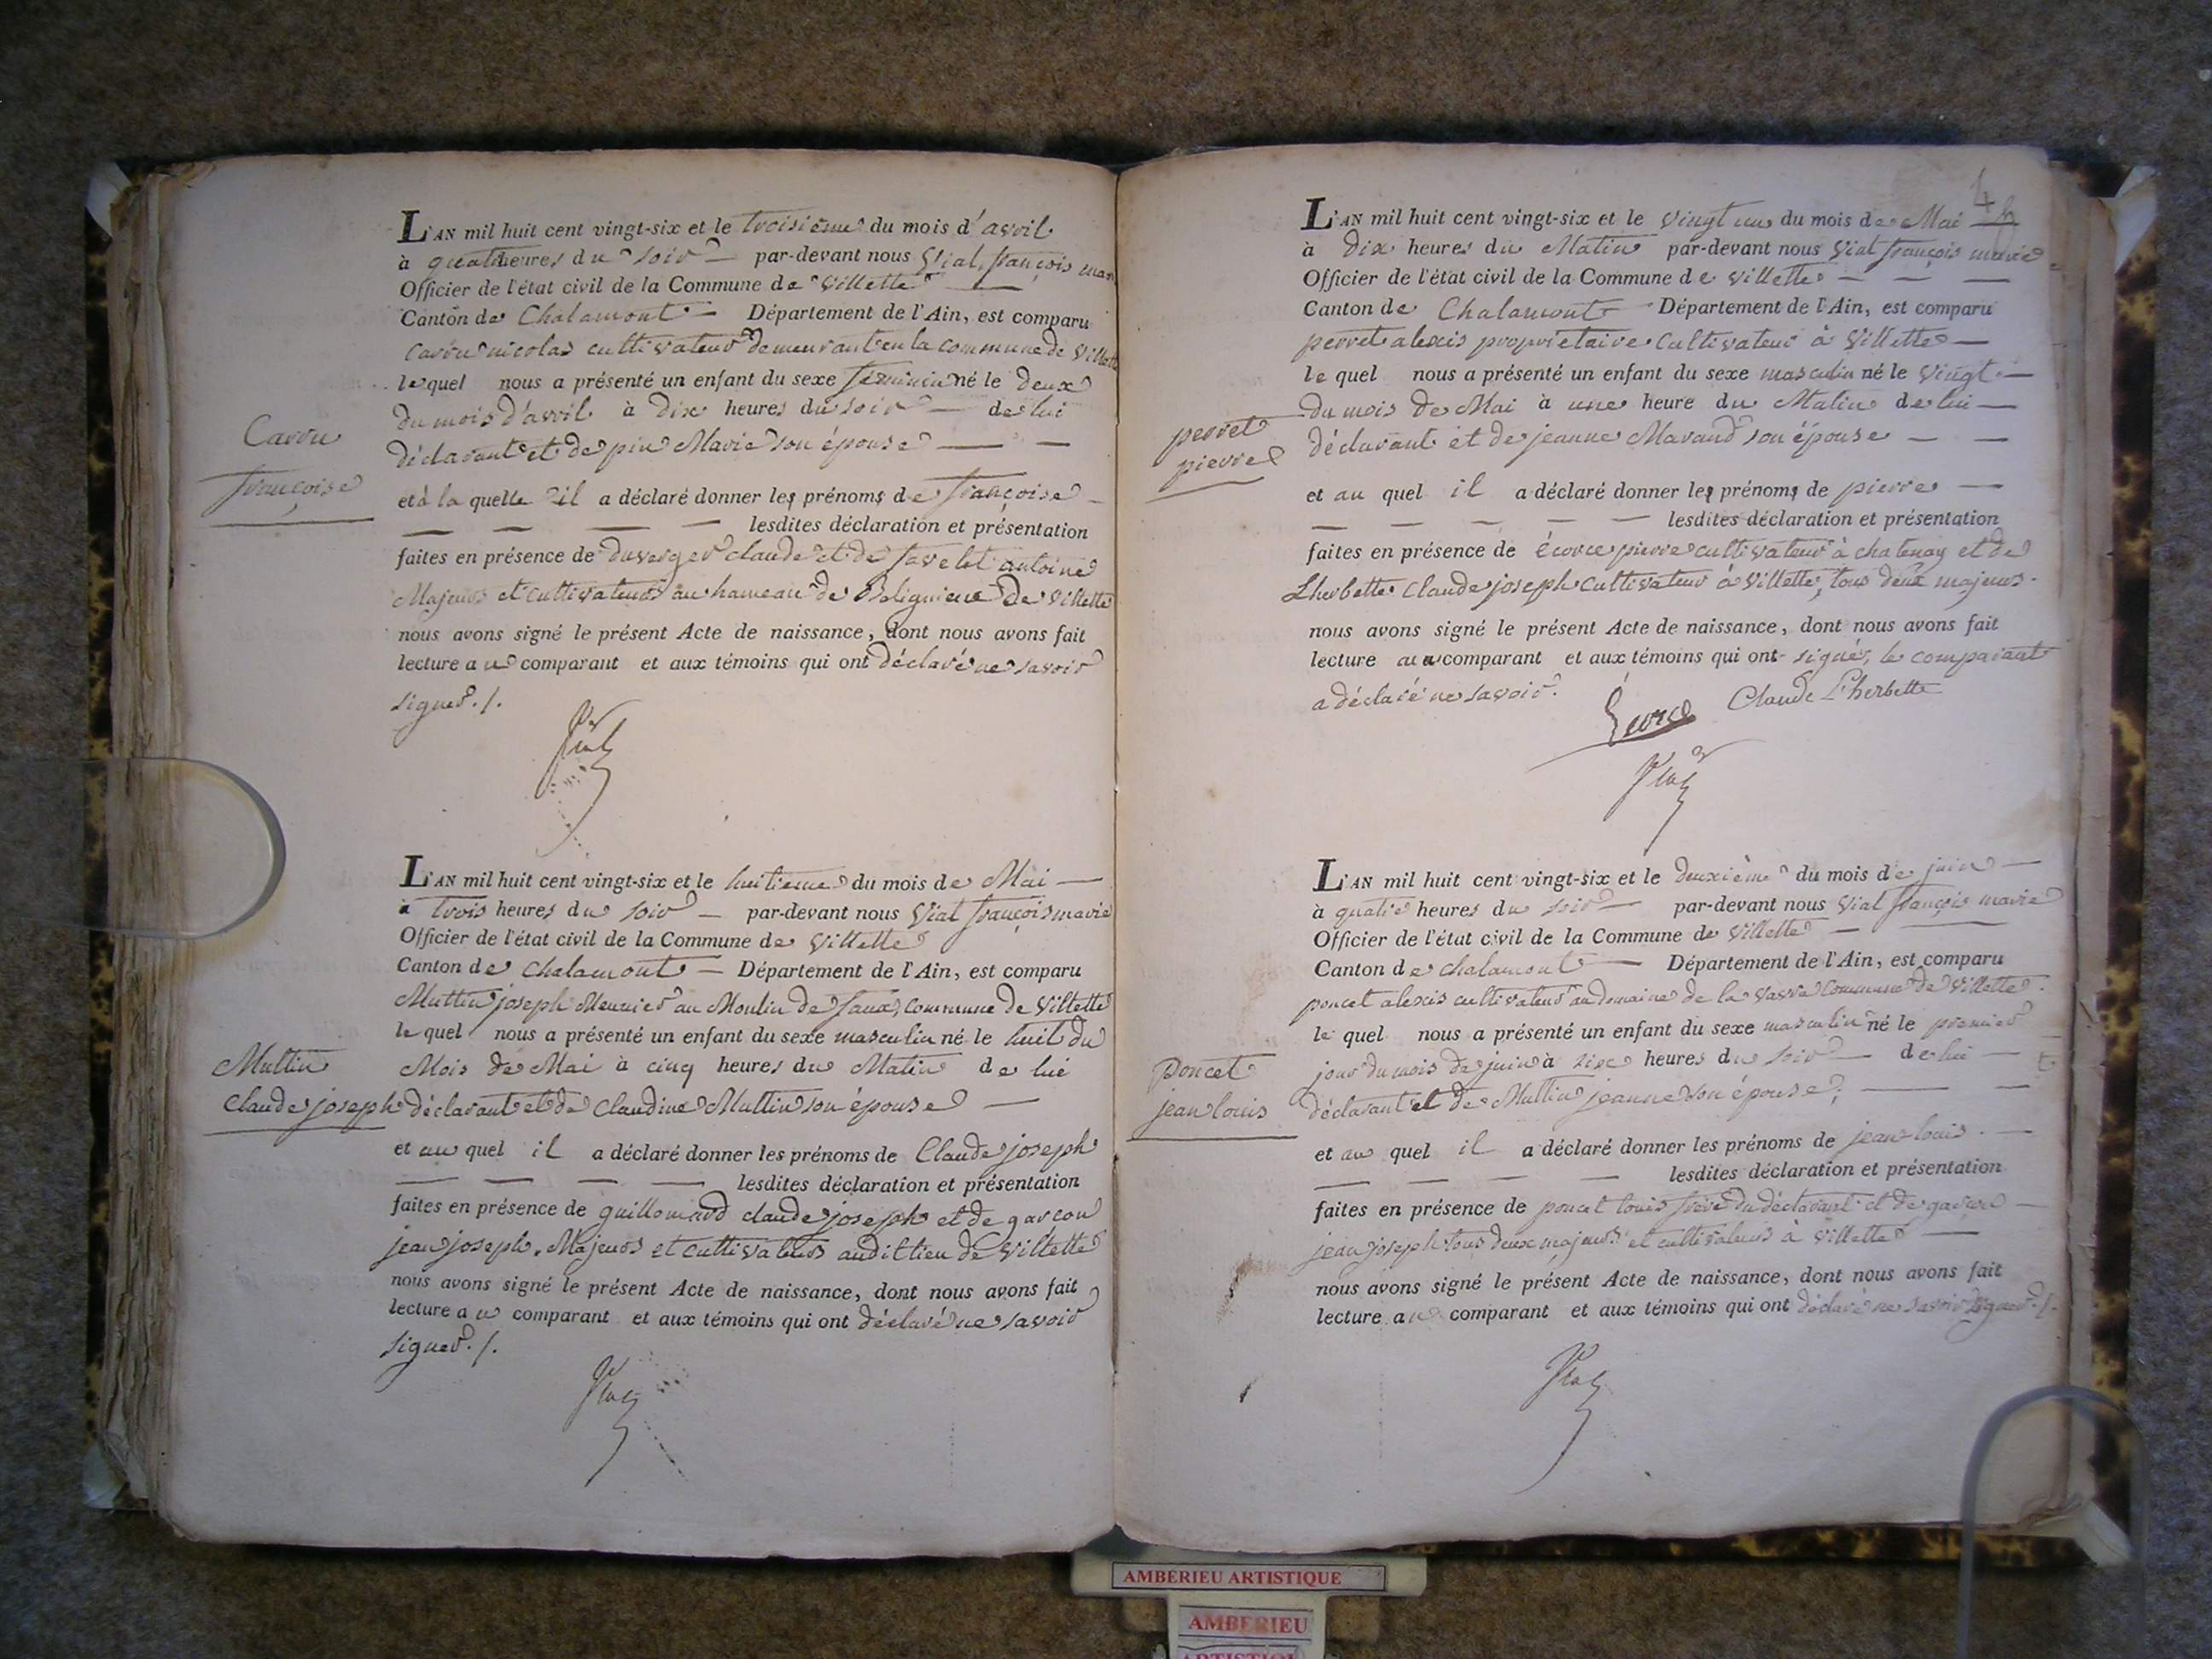 L'AN mil huit cent vingt-six et le troisième du mois d'avril
à quatre heures du soir — par-devant nous Vial, françois marie
Officier de l'état civil de la Commune de Villette —
Canton de Chalamont — Département de l'Ain, est comparu
Carru nicolas cultivateur demeurant en la commune de Villette
lequel nous a présenté un enfant du sexe féminin né le deux
du mois d'avril à dix heures du soir — de lui
Carru
déclarant et de pin Marie son épouse — —
françoise
et à la quelle il a déclaré donner les prénoms de françoise —
— — — — lesdites déclaration et présentation
faites en présence de duverger claude et de favelet antoine
Majeurs et cultivateurs au hameau de Boligneux de Villette
nous avons signé le présent Acte de naissance, dont nous avons fait
lecture au comparant et aux témoins qui ont déclaré ne savoir
signer ./.
Vial
L'AN mil huit cent vingt-six et le huitieme du mois de Mai —
à trois heures du soir — par-devant nous Vial françois marie
Officier de l'état civil de la Commune de Villette
Canton de chalamont — Département de l'Ain, est comparu
Muttin joseph Meunier au Moulin de faux, commune de Villette
le quel nous a présenté un enfant du sexe masculin né le huit du
Muttin
Mois de Mai à cinq heures du Matin de lui
claude joseph
déclarant et de Claudine Muttin son épouse —
et au quel il a déclaré donner les prénoms de Claude joseph
— — — — lesdites déclaration et présentation
faites en présence de guillomard claude joseph et de garçon
jean joseph. Majeurs et cultivateurs audit lieu de Villette
nous avons signé le présent Acte de naissance, dont nous avons fait
lecture au comparant et aux témoins qui ont déclaré ne savoir
signer ./.
Vial
4
L'AN mil huit cent vingt-six et le vingt un du mois de Mai
à dix heures du Matin par-devant nous Vial françois marie
Officier de l'état civil de la Commune de Villette — — —
Canton de Chalamont — Département de l'Ain, est comparu
perret alexis propriétaire cultivateur à Villette —
le quel nous a présenté un enfant du sexe masculin né le vingt —
du mois de Mai à une heure du Matin de lui —
perret
déclarant et de jeanne Marand son épouse — —
pierre
et au quel il a déclaré donner les prénoms de pierre —
— — — — — lesdites déclaration et présentation
faites en présence de écorce pierre cultivateur à chatenay et de
Lherbette Claude joseph cultivateur à Villette, tous deux majeurs.
nous avons signé le présent Acte de naissance, dont nous avons fait
lecture au comparant et aux témoins qui ont signés, le comparant
a déclaré ne savoir.
Ecorce Claude Lherbette
Vial
L'AN mil huit cent vingt-six et le deuxième du mois de juin —
à quatre heures du soir — par-devant nous Vial françois marie
Officier de l'état civil de la Commune de Villette — —
Canton de chalamont — Département de l'Ain, est comparu
poncet alexis cultivateur au domaine de la vavre commune de Villette.
le quel nous a présenté un enfant du sexe masculin né le premier
Poncet
jour du mois de juin à six heures du soir — de lui —
jean louis
déclarant et de Muttin jeanne son épouse; — —
et au quel il a déclaré donner les prénoms de jean louis. —
— — — — lesdites déclaration et présentation
faites en présence de poncet louis frère du déclarant et de garçon —
jean joseph tous deux majeurs et cultivateurs à Villette —
nous avons signé le présent Acte de naissance, dont nous avons fait
lecture au comparant et aux témoins qui ont déclaré ne savoir signer ./.
Vial
AMBERIEU ARTISTIQUE
AMBERIEU
ARTISTIQUE